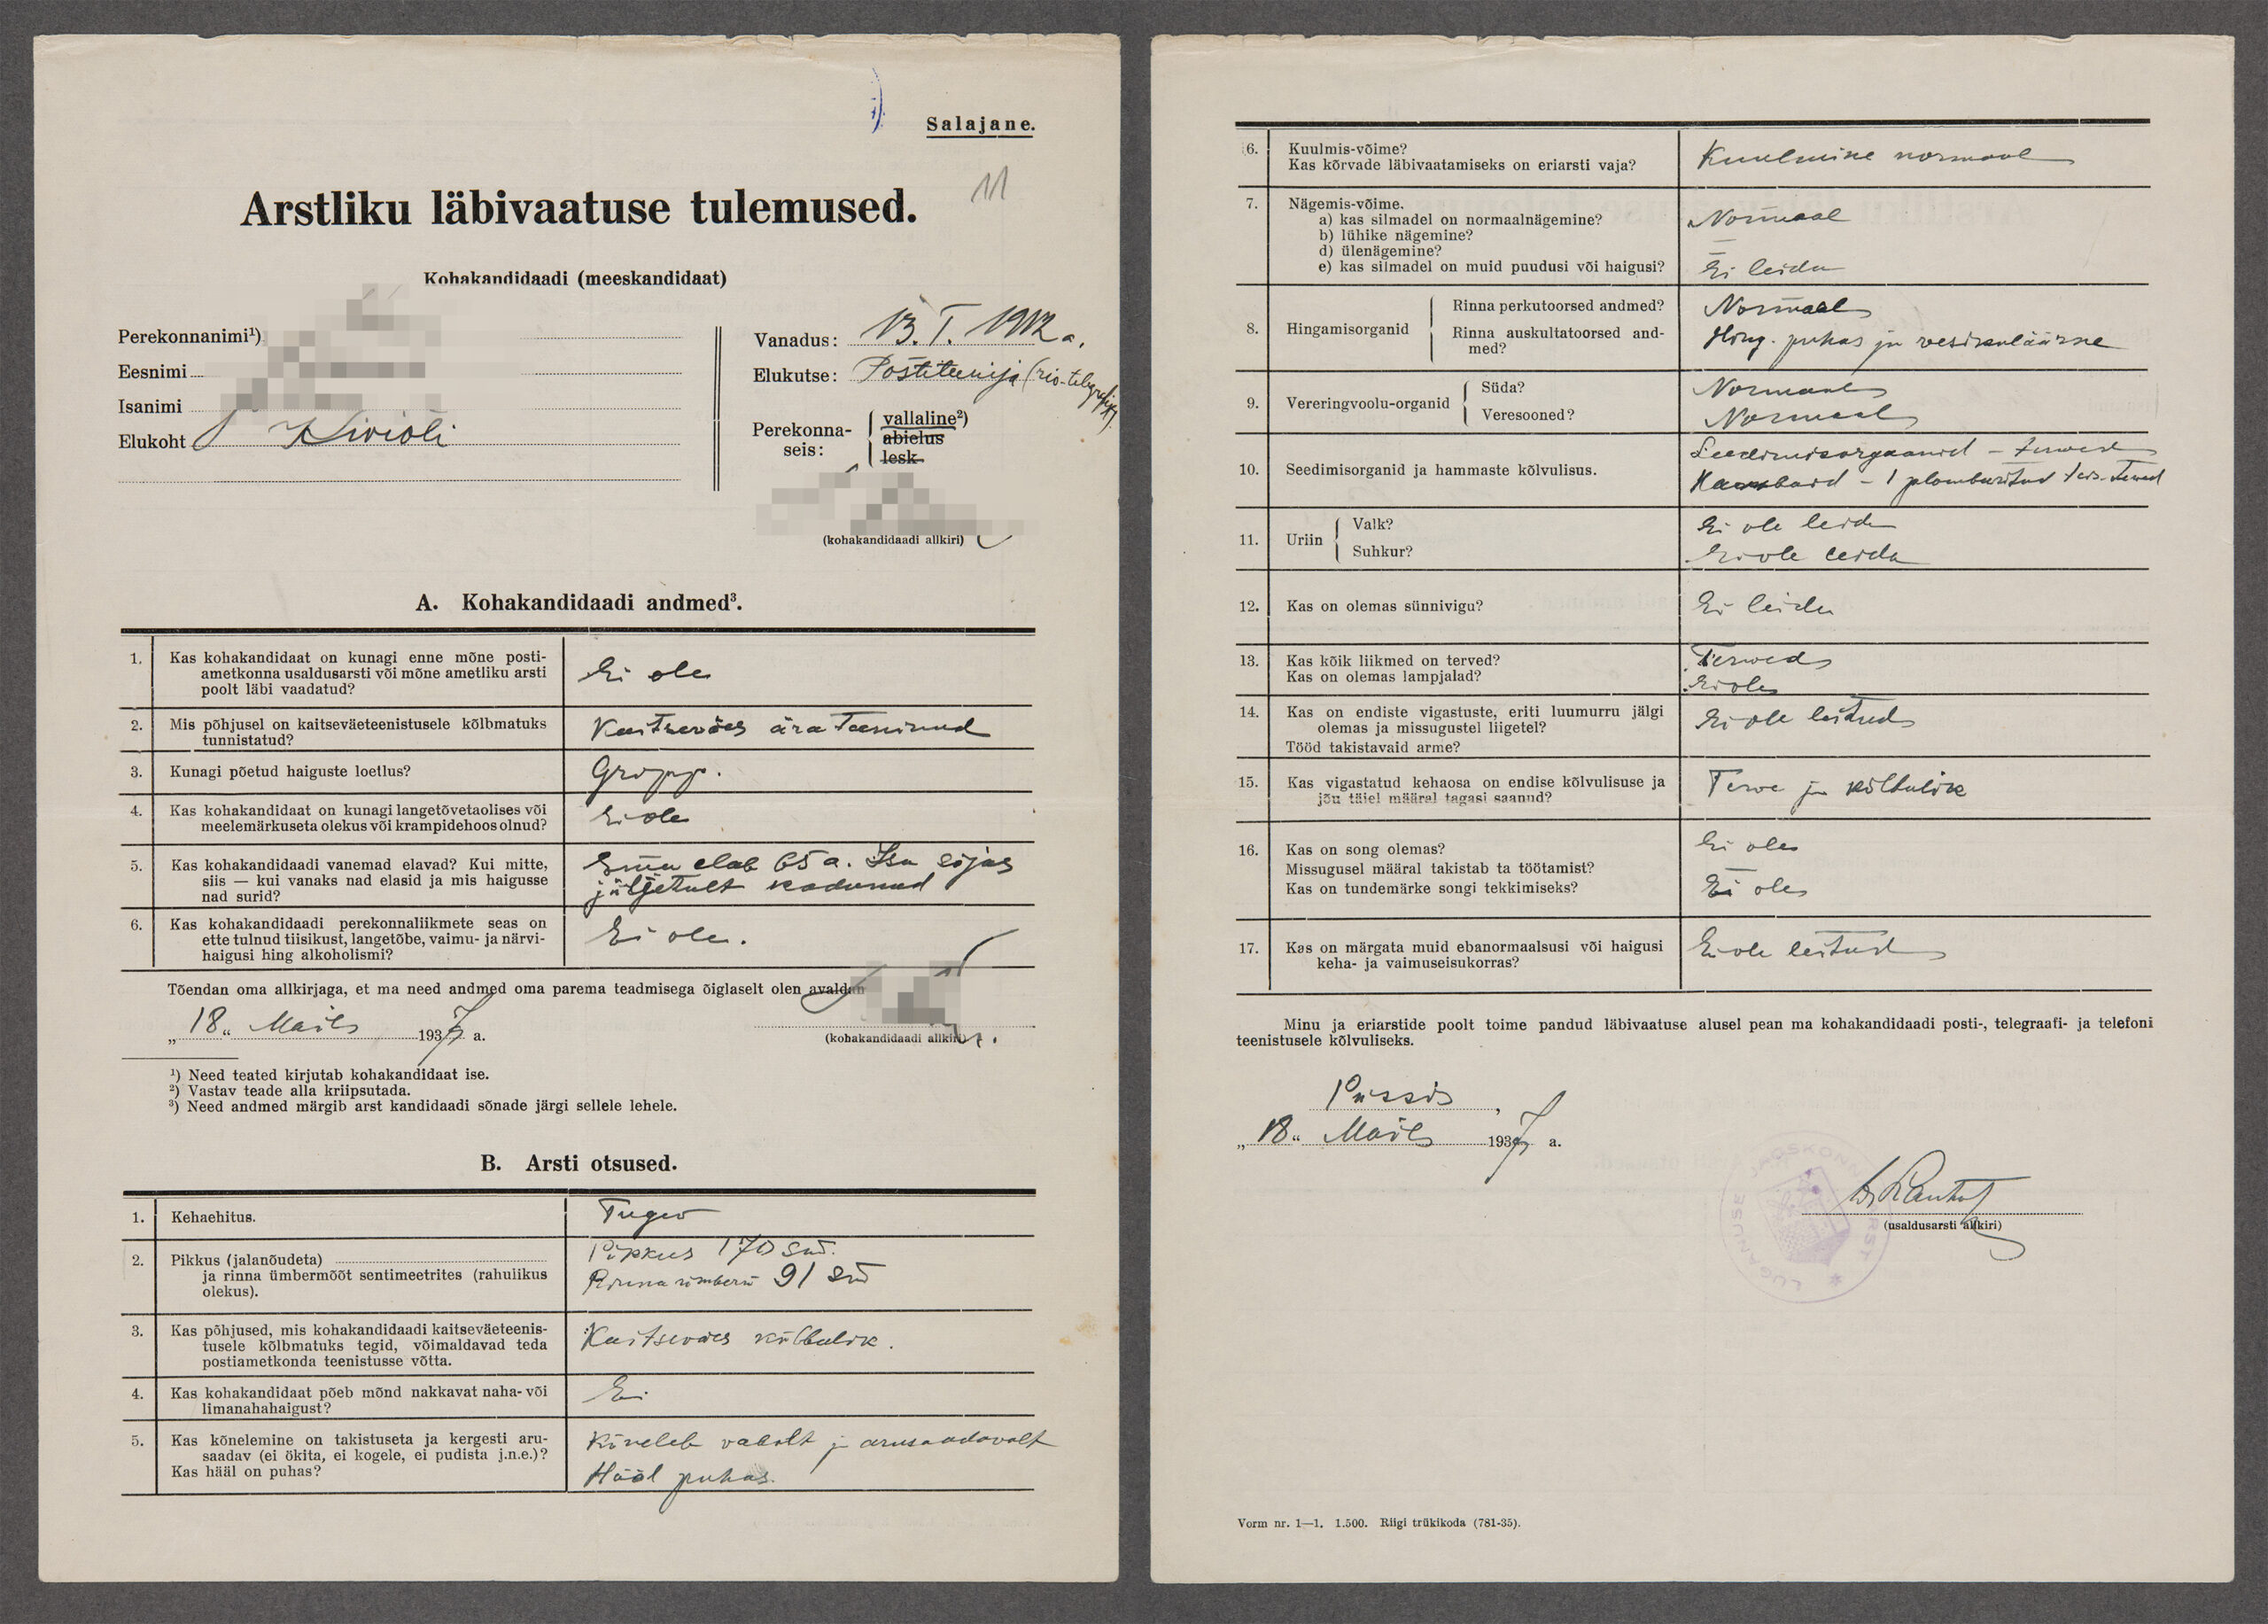 Salajane.
11
Arstliku läbivaatuse tulemused.
Kohakandidaadi (meeskandidaat)
Perekonnanimi¹)
Eesnimi
Isanimi
Elukoht Kiviõli
Vanadus: 13. I. 1912 a.
Elukutse: Postiteenija
Perekonna-seis: { vallaline²)
abielus
lesk
(kohakandidaadi allkiri)
A. Kohakandidaadi andmed³.
1. Kas kohakandidaat on kunagi enne mõne posti-
ametkonna usaldusarsti või mõne ametliku arsti
poolt läbi vaadatud?
Ei ole
2. Mis põhjusel on kaitseväeteenistusele kõlbmatuks
tunnistatud?
Kaitseväes ära teeninud
3. Kunagi põetud haiguste loetlus?
Gripp.
4. Kas kohakandidaat on kunagi langetõvetaolises või
meelemärkuseta olekus või krampidehoos olnud?
Ei ole
5. Kas kohakandidaadi vanemad elavad? Kui mitte,
siis — kui vanaks nad elasid ja mis haigusse
nad surid?
Ema elab 65 a. Isa sõjas
jäljetult kadunud
6. Kas kohakandidaadi perekonnaliikmete seas on
ette tulnud tiisikust, langetõbe, vaimu- ja närvi-
haigusi hing alkoholismi?
Ei ole.
Tõendan oma allkirjaga, et ma need andmed oma parema teadmisega õiglaselt olen avaldan
„18“ Mail 1937 a.
(kohakandidaadi allkiri)
¹) Need teated kirjutab kohakandidaat ise.
²) Vastav teade alla kriipsutada.
³) Need andmed märgib arst kandidaadi sõnade järgi sellele lehele.
B. Arsti otsused.
1. Kehaehitus.
Tugev
2. Pikkus (jalanõudeta)
ja rinna ümbermõõt sentimeetrites (rahulikus
olekus).
Pikkus 170 sm.
Rinna ümberm 91 sm
3. Kas põhjused, mis kohakandidaadi kaitseväeteenis-
tusele kõlbmatuks tegid, võimaldavad teda
postiametkonda teenistusse võtta.
Kaitseväes kõlbulik.
4. Kas kohakandidaat põeb mõnd nakkavat naha- või
limanahahaigust?
Ei
5. Kas kõnelemine on takistuseta ja kergesti aru-
saadav (ei ökita, ei kogele, ei pudista j.n.e.)?
Kas hääl on puhas?
Kõneleb vabalt ja arusaadavalt
Hääl puhas.
6. Kuulmis-võime?
Kas kõrvade läbivaatamiseks on eriarsti vaja?
Kuulmine normaal
7. Nägemis-võime.
a) kas silmadel on normaalnägemine?
b) lühike nägemine?
d) ülenägemine?
e) kas silmadel on muid puudusi või haigusi?
Normaal
—
—
Ei leidu
8. Hingamisorganid
Rinna perkutoorsed andmed?
Rinna auskultatoorsed and-
med?
Normaal
Hing. puhas ja vesikuläärne
9. Vereringvoolu-organid
Süda?
Veresooned?
Normaal
Normaal
10. Seedimisorganid ja hammaste kõlvulisus.
Seedimisorgaanid – terved
Hambaid – 1 plombeeritud teis. terved
11. Uriin
Valk?
Suhkur?
Ei ole leidu
Ei ole leidu
12. Kas on olemas sünnivigu?
Ei leidu
13. Kas kõik liikmed on terved?
Kas on olemas lampjalad?
Terved
Ei ole
14. Kas on endiste vigastuste, eriti luumurru jälgi
olemas ja missugustel liigetel?
Tööd takistavaid arme?
Ei ole leitud
15. Kas vigastatud kehaosa on endise kõlvulisuse ja
jõu täiel määral tagasi saanud?
Terve ja kõlbulik
16. Kas on song olemas?
Missugusel määral takistab ta töötamist?
Kas on tundemärke songi tekkimiseks?
Ei ole
Ei ole
17. Kas on märgata muid ebanormaalsusi või haigusi
keha- ja vaimuseisukorras?
Ei ole leitud
Minu ja eriarstide poolt toime pandud läbivaatuse alusel pean ma kohakandidaadi posti-, telegraafi- ja telefoni
teenistusele kõlvuliseks.
Püssis,
„18“ Mail 1937 a.
LÜGANUSE JAOSKONNAARST
(usaldusarsti allkiri)
Vorm nr. 1—1. 1.500. Riigi trükikoda (781-35).